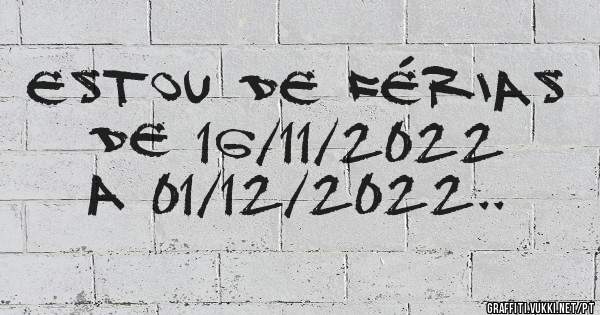 ESTOU DE FÉRIAS
DE 16/11/2022
A 01/12/2022..
GRAFFITI.VUKKI.NET/PT